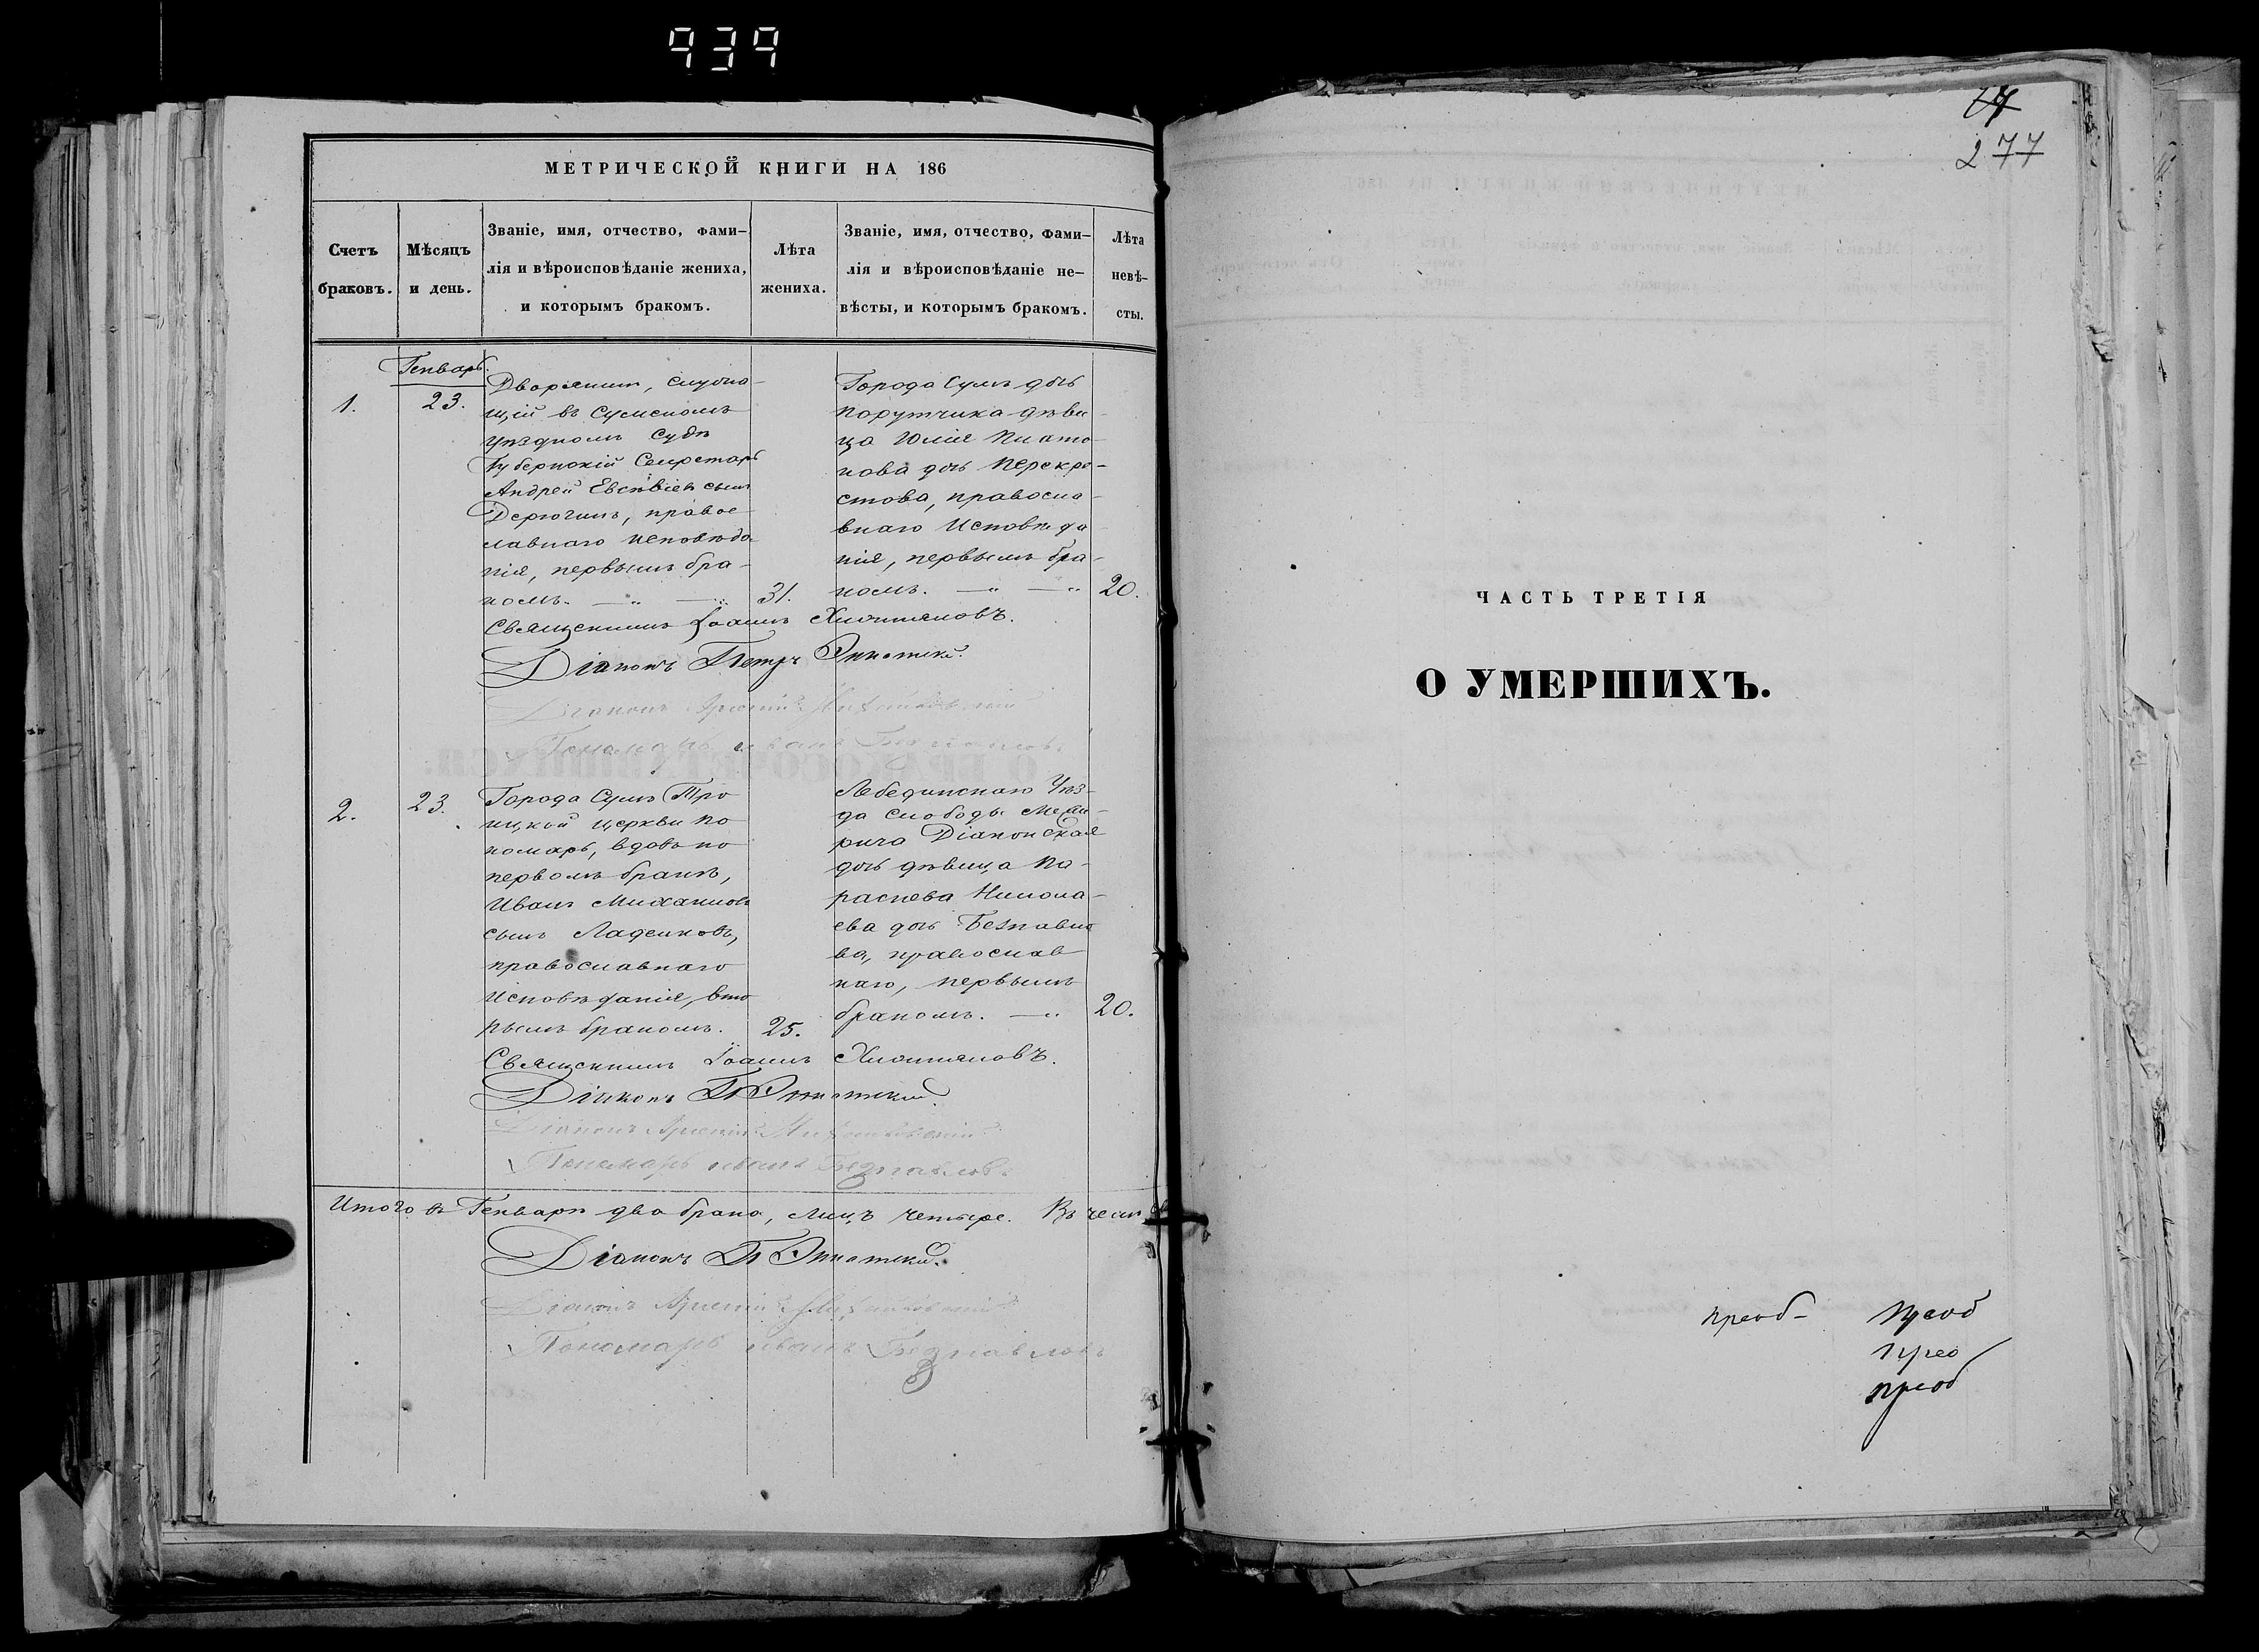 939
МЕТРИЧЕСКОЙ КНИГИ НА 186
Счетъ
браковъ.
Мѣсяцъ
и день.
Званіе, имя, отчество, фами-
лія и вѣроисповѣданіе жениха,
и которымъ бракомъ.
Лѣта
жениха.
Званіе, имя, отчество, фами-
лія и вѣроисповѣданіе не-
вѣсты, и которымъ бракомъ.
Лѣта
невѣ-
сты.
Генварь.
1.
23.
Дворянинъ, служа-
щій въ Сумскомъ
Уѣздномъ Судѣ
Губернскій Секретарь
Андрей Евсѣвіевъ сынъ
Дерюгинъ, правос
лавнаго исповѣда
нія, первымъ бра-
комъ.
31.
Города Сумъ дочь
порутчика дѣви
ца Юлія Плато
нова дочь Перекре-
стова, правосла
внаго Исповѣда
нія, первымъ бра-
комъ.
20.
Священникъ Іоаннъ
Діаконъ Петръ
Діаконъ
Пономарь Иванъ Безпавловъ
2.
23.
Города Сумъ Тро
ицкой церкви по
номарь, вдовъ по
первомъ бракѣ,
Иванъ Михаиловъ
сынъ Ладенковъ,
православнаго
Исповѣданія, вто
рымъ бракомъ.
25.
Лебединскаго Уѣз-
да слободы Межи-
рича Діаконская
дочь дѣвица Па-
раскева Никола-
ева дочь Безпавло
ва, православ
наго, первымъ
бракомъ.
20.
Священникъ Іоаннъ
Діаконъ П
Діаконъ
Пономарь Иванъ Безпавловъ
Итого въ Генварѣ два брака, лицъ четыре.
Діаконъ П
Діаконъ
Пономарь Иванъ Безпавловъ
277
ЧАСТЬ ТРЕТІЯ
О УМЕРШИХЪ.
преоб-
преоб
прео
преоб